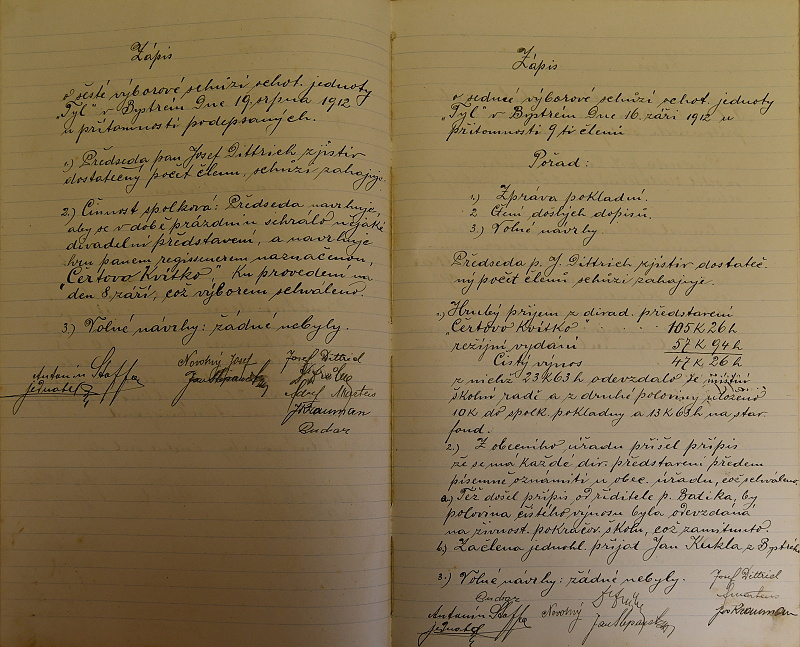 Zápis
o šesté výborové schůzi ochot. jednoty
"Tyl" v Bystrém Dne 19. srpna 1912
u přítomnosti podepsaných.
1.) Předseda pan Josef Dittrich zjistiv
dostatečný počet členů, schůzi zahajuje.
2.) Činnost spolková: Předseda navrhuje,
aby se v době prázdnin sehrálo nějaké
divadelní představení, a navrhuje
hru panem regisseurem naznačenou,
"Čertovo Kvítko". Ku provedení na
den 8. září, což výborem schváleno.
3.) Volné návrhy: žádné nebyly.
Antonín Štoffa
jednatel
Novotný Josef
Jan Štěpánek
Josef Dittrich
Josef Martens
J. Krauman
Cudar
Zápis
o sedmé výborové schůzi ochot. jednoty
"Tyl" v Bystrém Dne 16. září 1912 u
přítomnosti 9ti členů
Pořad:
1.) Zpráva pokladní.
2 Čtení došlých dopisů.
3.) Volné návrhy.
Předseda p. J. Dittrich zjistiv dostateč-
ný počet členů schůzi zahajuje.
1.) Hrubý příjem z divad. představení
"Čertovo kvítko . . . . . 105 K 26 h
režijní vydání 57 K 94 h
Čistý výnos 47 K 26 h
z nichž 23 K 63 h odevzdalo se místní
školní radě a z druhé poloviny uloženo
10 K do spolk. pokladny a 13 K 63 h na stav.
fond.
2.) Z obecního úřadu přišel přípis
že se má každé div. představení předem
písemně oznámiti u obec. úřadu, což schváleno
a.) Též došel přípis od řiditele p. Batíka, by
polovina čistého výnosu byla odevzdána
na živnost. pokračov. školu, což zamítnuto
b.) Za člena jednohl. přijat Jan Kukla z Bystrého
3.) Volné návrhy: žádné nebyly.
Cudar
Antonín Štoffa
jednatel
Novotný
Jan Štěpánek
Josef Dittrich
Martens
Jos Krauman